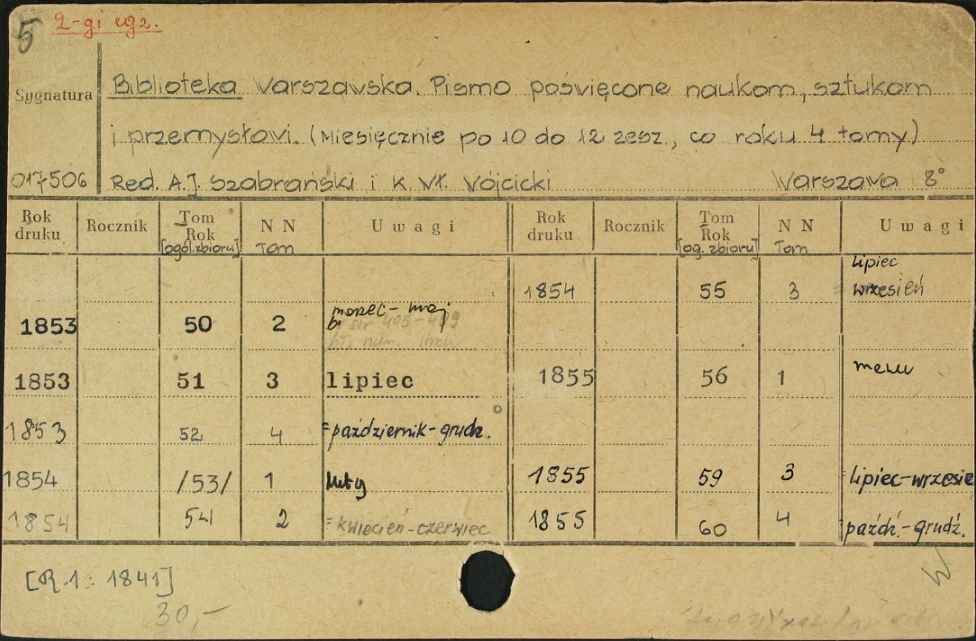 5 2-gi egz.
Sygnatura
Biblioteka Warszawska. Pismo poświęcone naukom, sztukom
i przemysłowi. (Miesięcznie po 10 do 12 zesz., co roku 4 tomy)
017506 Red. A.J. Szabrański i K. Wł. Wójcicki Warszawa 8°
Rok druku Rocznik Tom Rok [ogól. zbioru] N N Tom Uwagi Rok druku Rocznik Tom Rok [og. zbioru] N N Tom Uwagi
1854 55 3 lipiec wrzesień
1853 50 2 marzec - maj
str 405-409
1853 51 3 lipiec
1855 56 1
1853 52 4 =październik-grudz.
1854 /53/ 1 luty
1855 59 3 =lipiec-wrzesie
1854 54 2 =kwiecień-czerwiec
1855 60 4 paźdź.-grudź.
[R.1: 1841]
30,-
W